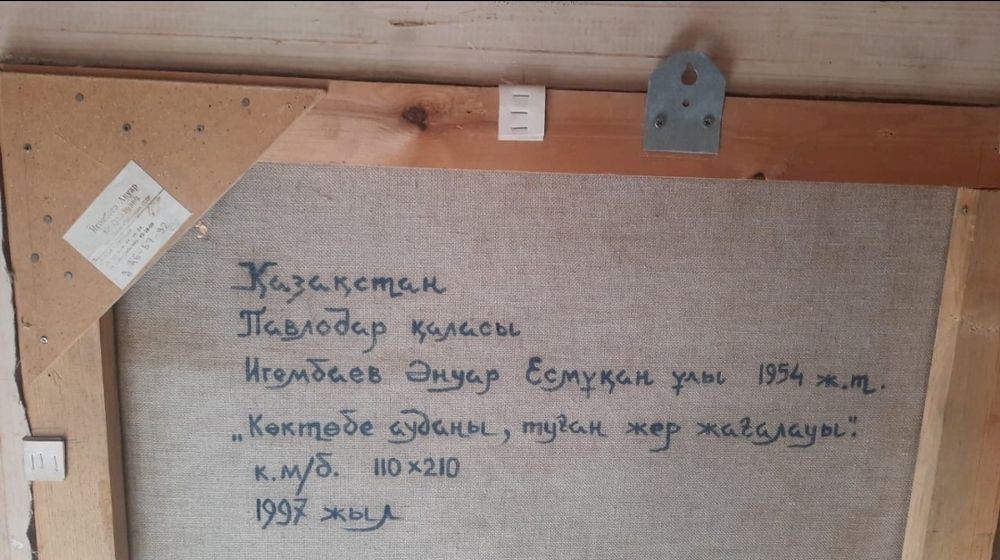 Игембаев Ануар
Қазақстан
Павлодар қаласы
Игембаев Әнуар Есмұқан ұлы 1954 ж.т.
„Көктөбе ауданы, туған жер жағалауы".
к.м/б. 110×210
1997 жыл